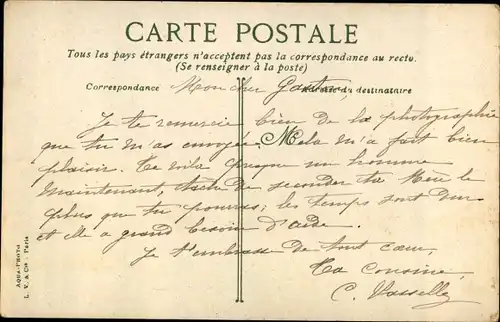 CARTE POSTALE
Tous les pays étrangers n'acceptent pas la correspondance au recto.
(Se renseigner à la poste)
Correspondance
Adresse du destinataire
Mon cher Gaston,
Je te remercie bien de la photographie
que tu m'as envoyée. Cela m'a fait bien
plaisir. Te voilà presque un homme
maintenant, tâche de seconder ta Mère le
plus que tu pourras; les temps sont durs
et elle a grand besoin d'aide.
Je t'embrasse de tout cœur,
Ta cousine,
C.
AQUA-PHOTO
L. V. & Cie - Paris